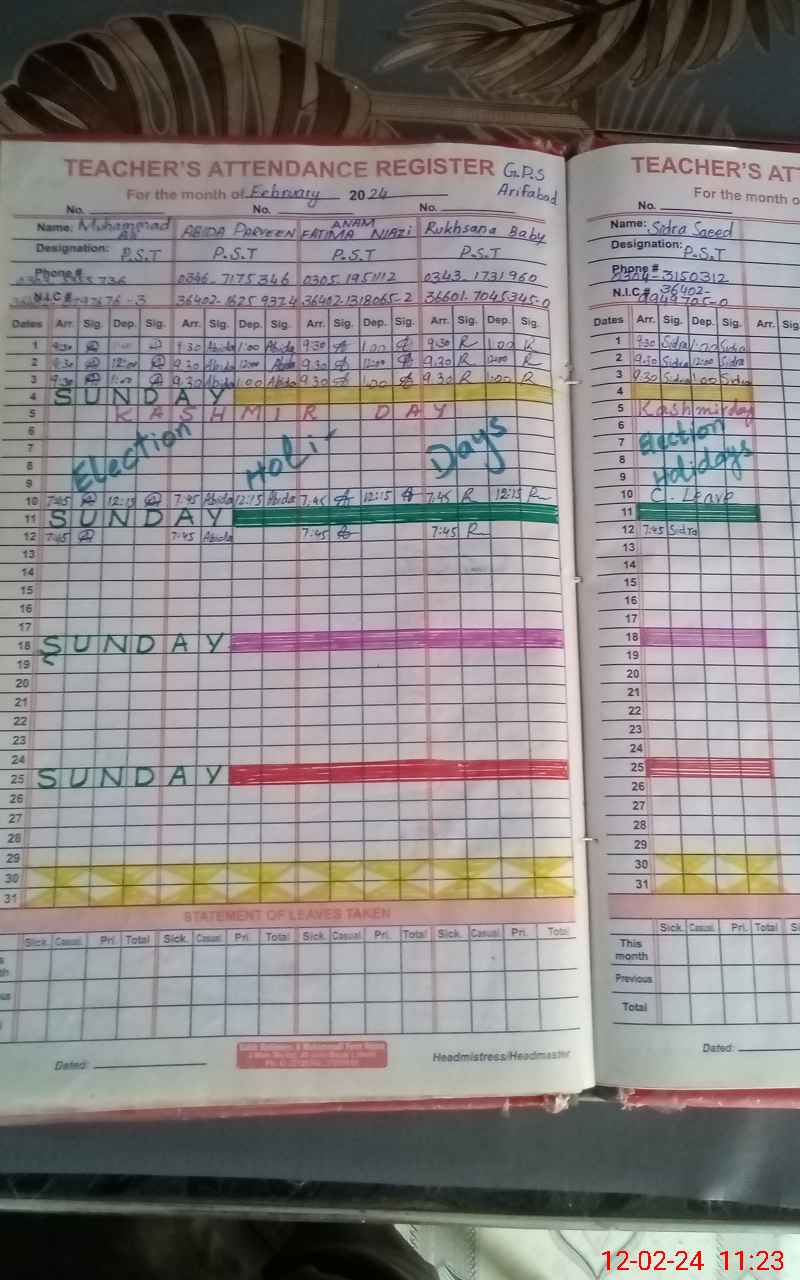 TEACHER'S ATTENDANCE REGISTER G.P.S
For the month of February 2024 Arifabad
No. No. No.
Name: Muhammad ABIDA PARVEEN ANAM FATIMA NIAZI Rukhsana Baby
Designation: P.S.T P.S.T P.S.T P.S.T
Phone # 0346-7175346 0305.1951112 0343-1731960
N.I.C # 36402-1625932-4 36402-1318065-2 36601.7045345-0
Dates Arr. Sig. Dep. Sig. Arr. Sig. Dep. Sig. Arr. Sig. Dep. Sig. Arr. Sig. Dep. Sig.
1 9:30 9:30 Abida 1:00 Abida 9.30 1.00 9:30 R 1.00 R
2 9:30 12:00 9.30 Abida 12:00 Abida 9.30 12:00 9.30 R 12:00 R
3 9:30 1:00 9.30 Abida 1:00 Abida 9.30 1.00 9.30 R 1:00 R
4 SUNDAY
5 KASHMIR DAY
6
7
8 Election Holi- Days
9
10 7:45 12:15 7:45 Abida 12:15 Abida 7:45 12:15 7:45 R 12:15 R
11 SUNDAY
12 7:45 7:45 Abida 7:45 7:45 R
13
14
15
16
17
18 SUNDAY
19
20
21
22
23
24
25 SUNDAY
26
27
28
29
30
31
STATEMENT OF LEAVES TAKEN
Sick. Casual. Pri. Total Sick. Casual. Pri. Total Sick. Casual. Pri. Total Sick. Casual. Pri. Total
Dated: Headmistress/Headmaster
TEACHER'S ATT
For the month o
No.
Name: Sidra Saeed
Designation: P.S.T
Phone # 3150312
N.I.C #. 36402-
Dates Arr. Sig. Dep. Sig. Arr. Sig.
1 9:30 Sidra 1:00 Sidra
2 9:30 Sidra 12:00 Sidra
3 9.30 Sidra 1:00 Sidra
4
5 Kashmir day
6
7 Election
8
9 Holidays
10 C. Leave
11
12 7:45 Sidra
13
14
15
16
17
18
19
20
21
22
23
24
25
26
27
28
29
30
31
Sick. Casual. Pri. Total
This month
Previous
Total
Dated:
12-02-24 11:23